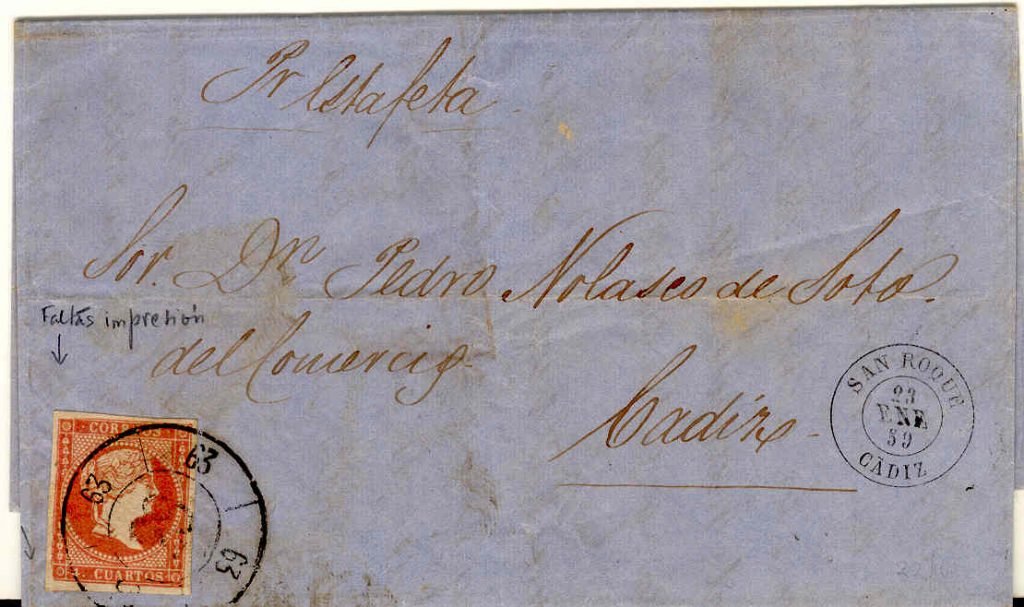 Pr Estafeta
Sor. Dn. Pedro Nolasco de Soto.
Faltas impresión
del Comercio
Cadiz
SAN ROQUE
23
ENE
59
CÁDIZ
CORREOS
CUARTOS
63
63
63